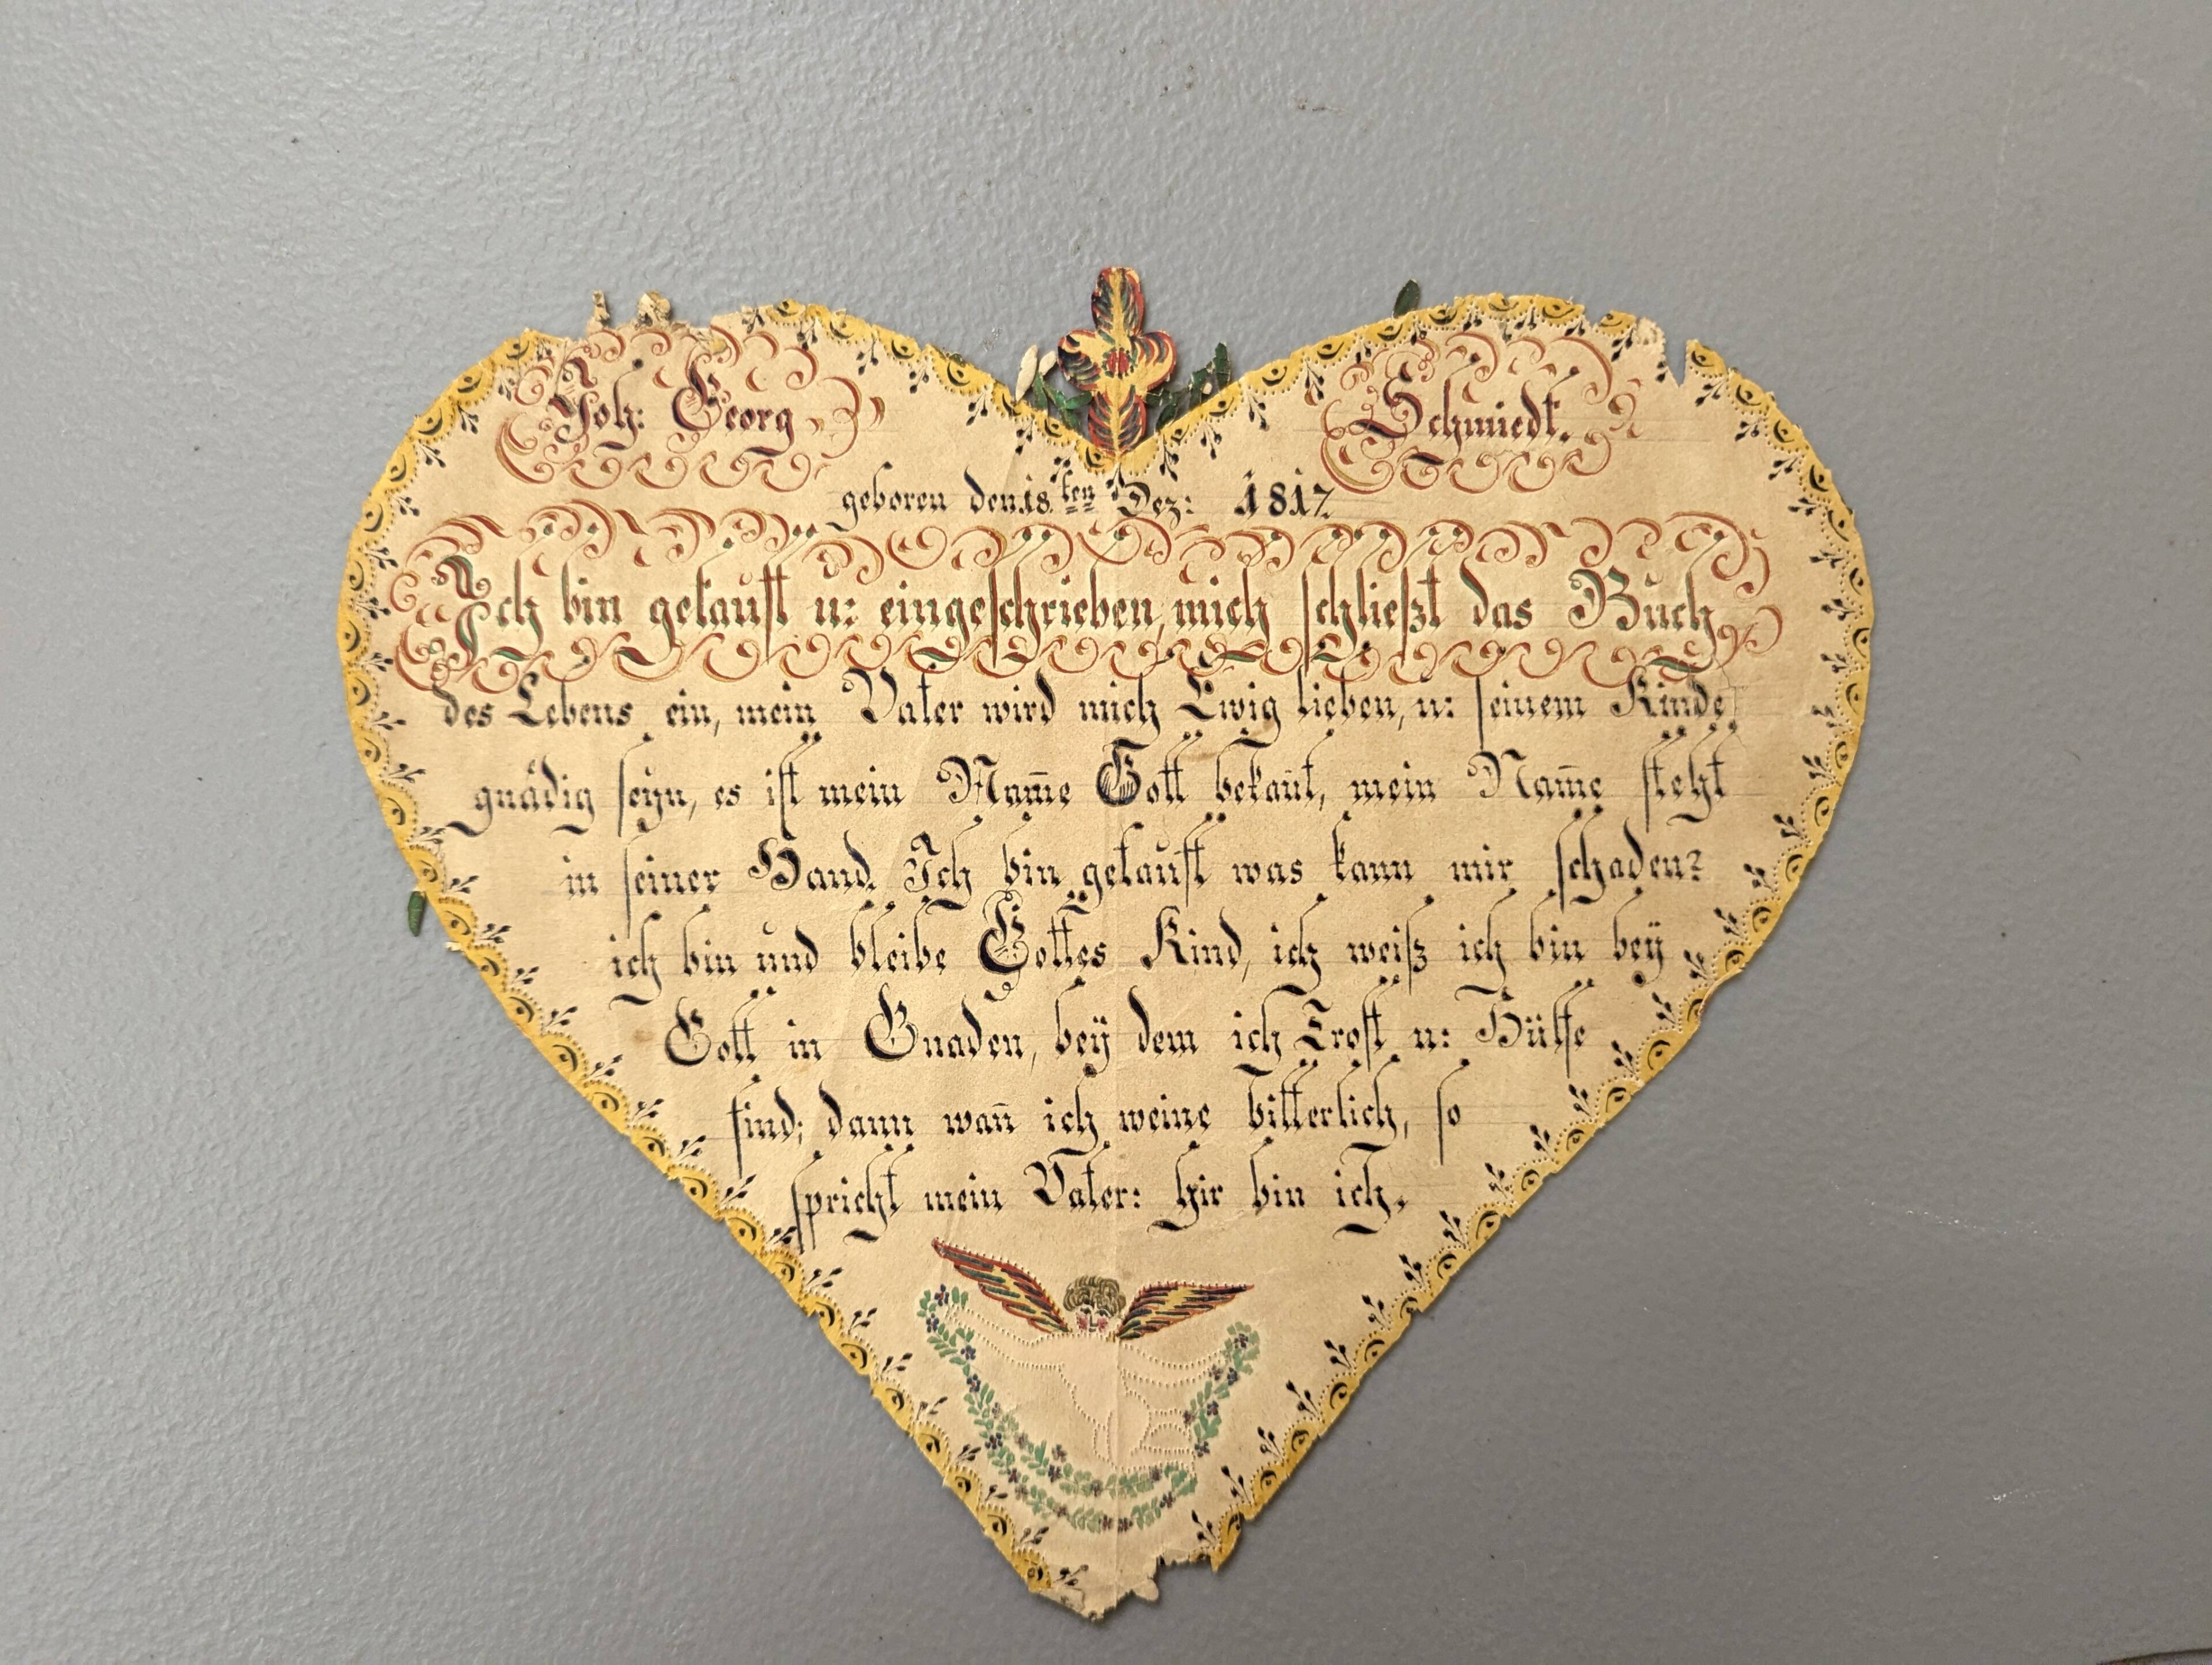 Joh: Georg Schmiedt.
geboren den 18ten Dez: 1817
Ich bin getauft u: eingeschrieben, mich schließt das Buch
des Lebens ein, mein Vater wird mich Ewig lieben, u: seinem Kinde
gnädig seyn, es ist mein Nam̅e Gott bekan̅t, mein Nam̅e steht
in seiner Hand. Ich bin getauft was kann mir schaden?
ich bin und bleibe Gottes Kind, ich weiß ich bin beÿ
Gott in Gnaden, beÿ dem ich Trost u: Hülfe
find; dann wan̅ ich weine bitterlich, so
spricht mein Vater: hir bin ich.